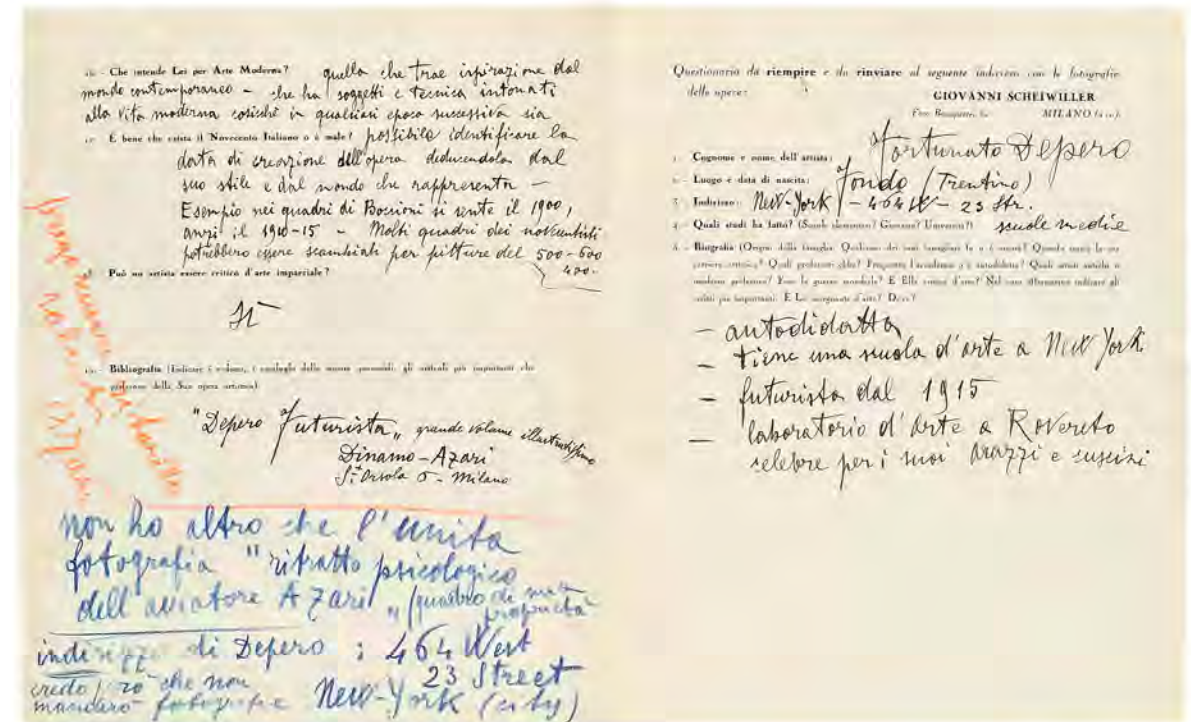 16. - Che intende Lei per Arte Moderna? quella che trae ispirazione dal
mondo contemporaneo - che ha soggetti e tecnica intonati
alla vita moderna cosichè in qualsiasi epoca successiva sia
17. - È bene che esista il Novecento Italiano o è male? possibile identificare la
data di creazione dell'opera deducendola dal
suo stile e dal mondo che rappresenta -
Esempio nei quadri di Boccioni si sente il 1900,
anzi il 1910-15 - Molti quadri dei novecentisti
potrebbero essere scambiati per pitture del 500-600
400.
18. - Può un artista essere critico d'arte imparziale?
SI
19. - Bibliografia (Indicare i volumi, i cataloghi delle mostre personali, gli articoli più importanti che
parlarono della Sua opera artistica)
"Depero Futurista" grande volume illustratissimo
Dinamo-Azari
S. Orsola 6 - Milano
non ho altro che l'unita
fotografia "ritratto psicologico
dell'aviatore Azari" (quadro di mia
proprietà
indirizzo di Depero : 464 West
23 Street
New-York (city)
credo però che non
manderà fotografie
Questionario da riempire e da rinviare al seguente indirizzo con le fotografie
delle opere:
GIOVANNI SCHEIWILLER
MILANO
1. - Cognome e nome dell'artista: Fortunato Depero
2. - Luogo e data di nascita: Fondo (Trentino)
3. - Indirizzo: New-York - 464 W - 23 Str.
4. - Quali studi ha fatto? (Scuole elementari? Ginnasio? Università?) scuole medie
5. - Biografia (Origini della famiglia. Qualcuno dei suoi famigliari fu o è artista? Quando iniziò la sua
carriera artistica? Quali professori ebbe? Frequentò l'accademia o è autodidatta? Quali artisti antichi o
moderni preferisce? Fece la guerra mondiale? È Ella critico d'arte? Nel caso affermativo indicare gli
scritti più importanti. È Lei insegnante d'arte? Dove?)
- autodidatta
- tiene una scuola d'arte a New York
- futurista dal 1915
- laboratorio d'arte a Rovereto
celebre per i suoi arazzi e cuscini